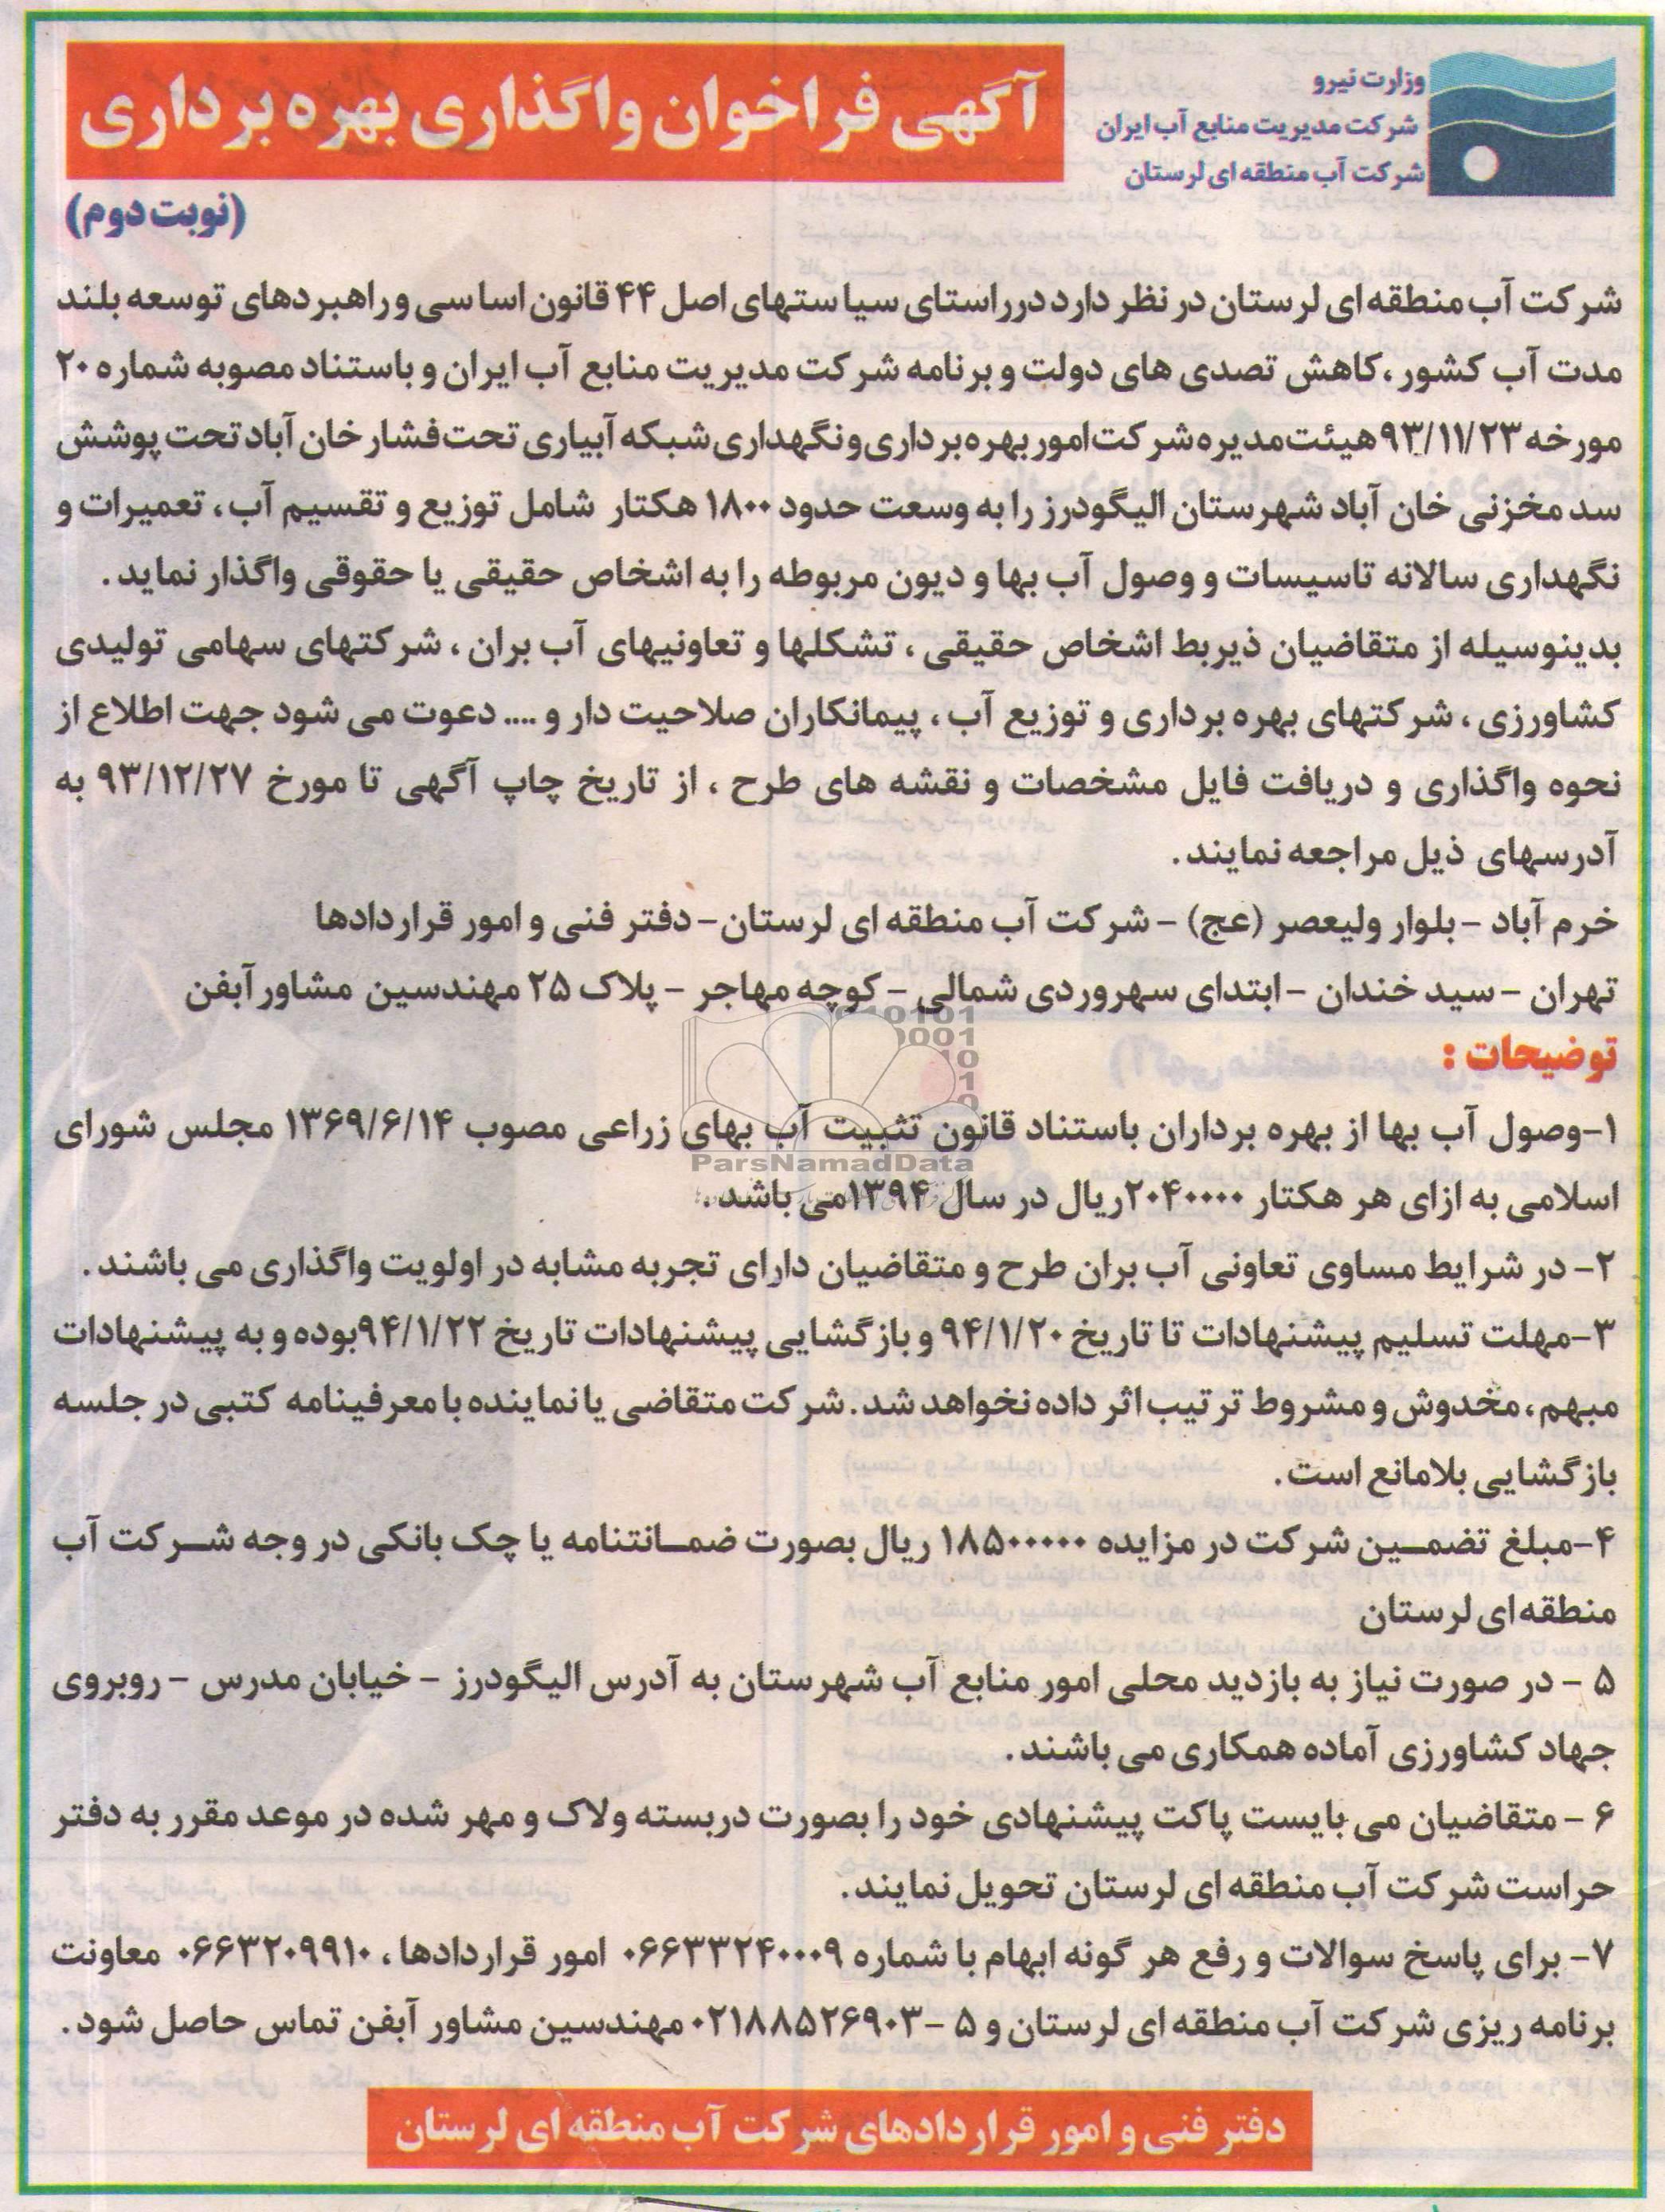 وزارت نیرو
شرکت مدیریت منابع آب ایران
شرکت آب منطقه ای لرستان
آگهی فراخوان واگذاری بهره برداری
(نوبت دوم)
شرکت آب منطقه ای لرستان در نظر دارد درراستای سیاستهای اصل ۴۴ قانون اساسی و راهبردهای توسعه بلند
مدت آب کشور ،کاهش تصدی های دولت و برنامه شرکت مدیریت منابع آب ایران و باستناد مصوبه شماره ۲۰
مورخه ۹۳/۱۱/۲۳ هیئت مدیره شرکت امور بهره برداری و نگهداری شبکه آبیاری تحت فشار خان آباد تحت پوشش
سد مخزنی خان آباد شهرستان الیگودرز را به وسعت حدود ۱۸۰۰ هکتار شامل توزیع و تقسیم آب ، تعمیرات و
نگهداری سالانه تاسیسات و وصول آب بها و دیون مربوطه را به اشخاص حقیقی یا حقوقی واگذار نماید .
بدینوسیله از متقاضیان ذیربط اشخاص حقیقی ، تشکلها و تعاونیهای آب بران ، شرکتهای سهامی تولیدی
کشاورزی ، شرکتهای بهره برداری و توزیع آب ، پیمانکاران صلاحیت دار و .... دعوت می شود جهت اطلاع از
نحوه واگذاری و دریافت فایل مشخصات و نقشه های طرح ، از تاریخ چاپ آگهی تا مورخ ۹۳/۱۲/۲۷ به
آدرسهای ذیل مراجعه نمایند .
خرم آباد – بلوار ولیعصر (عج) – شرکت آب منطقه ای لرستان– دفتر فنی و امور قراردادها
تهران – سید خندان – ابتدای سهروردی شمالی – کوچه مهاجر – پلاک ۲۵ مهندسین مشاور آبفن
توضیحات :
۱–وصول آب بها از بهره برداران باستناد قانون تثبیت آب بهای زراعی مصوب ۱۳۶۹/۶/۱۴ مجلس شورای
اسلامی به ازای هر هکتار ۲۰۴۰۰۰۰ریال در سال ۱۳۹۴می باشد .
۲– در شرایط مساوی تعاونی آب بران طرح و متقاضیان دارای تجربه مشابه در اولویت واگذاری می باشند .
۳–مهلت تسلیم پیشنهادات تا تاریخ ۹۴/۱/۲۰ و بازگشایی پیشنهادات تاریخ ۹۴/۱/۲۲بوده و به پیشنهادات
مبهم ، مخدوش و مشروط ترتیب اثر داده نخواهد شد . شرکت متقاضی یا نماینده با معرفینامه کتبی در جلسه
بازگشایی بلامانع است .
۴–مبلغ تضمــین شرکت در مزایده ۱۸۵۰۰۰۰۰ ریال بصورت ضمــانتنامه یا چک بانکی در وجه شــرکت آب
منطقه ای لرستان
۵ – در صورت نیاز به بازدید محلی امور منابع آب شهرستان به آدرس الیگودرز – خیابان مدرس – روبروی
جهاد کشاورزی آماده همکاری می باشند .
۶ – متقاضیان می بایست پاکت پیشنهادی خود را بصورت دربسته ولاک و مهر شده در موعد مقرر به دفتر
حراست شرکت آب منطقه ای لرستان تحویل نمایند .
۷– برای پاسخ سوالات و رفع هر گونه ابهام با شماره ۰۶۶۳۳۲۴۰۰۰۹ امور قراردادها ، ۰۶۶۳۲۰۹۹۱۰ معاونت
برنامه ریزی شرکت آب منطقه ای لرستان و ۵ –۰۲۱۸۸۵۲۶۹۰۳ مهندسین مشاور آبفن تماس حاصل شود .
دفتر فنی و امور قراردادهای شرکت آب منطقه ای لرستان
ParsNamadData